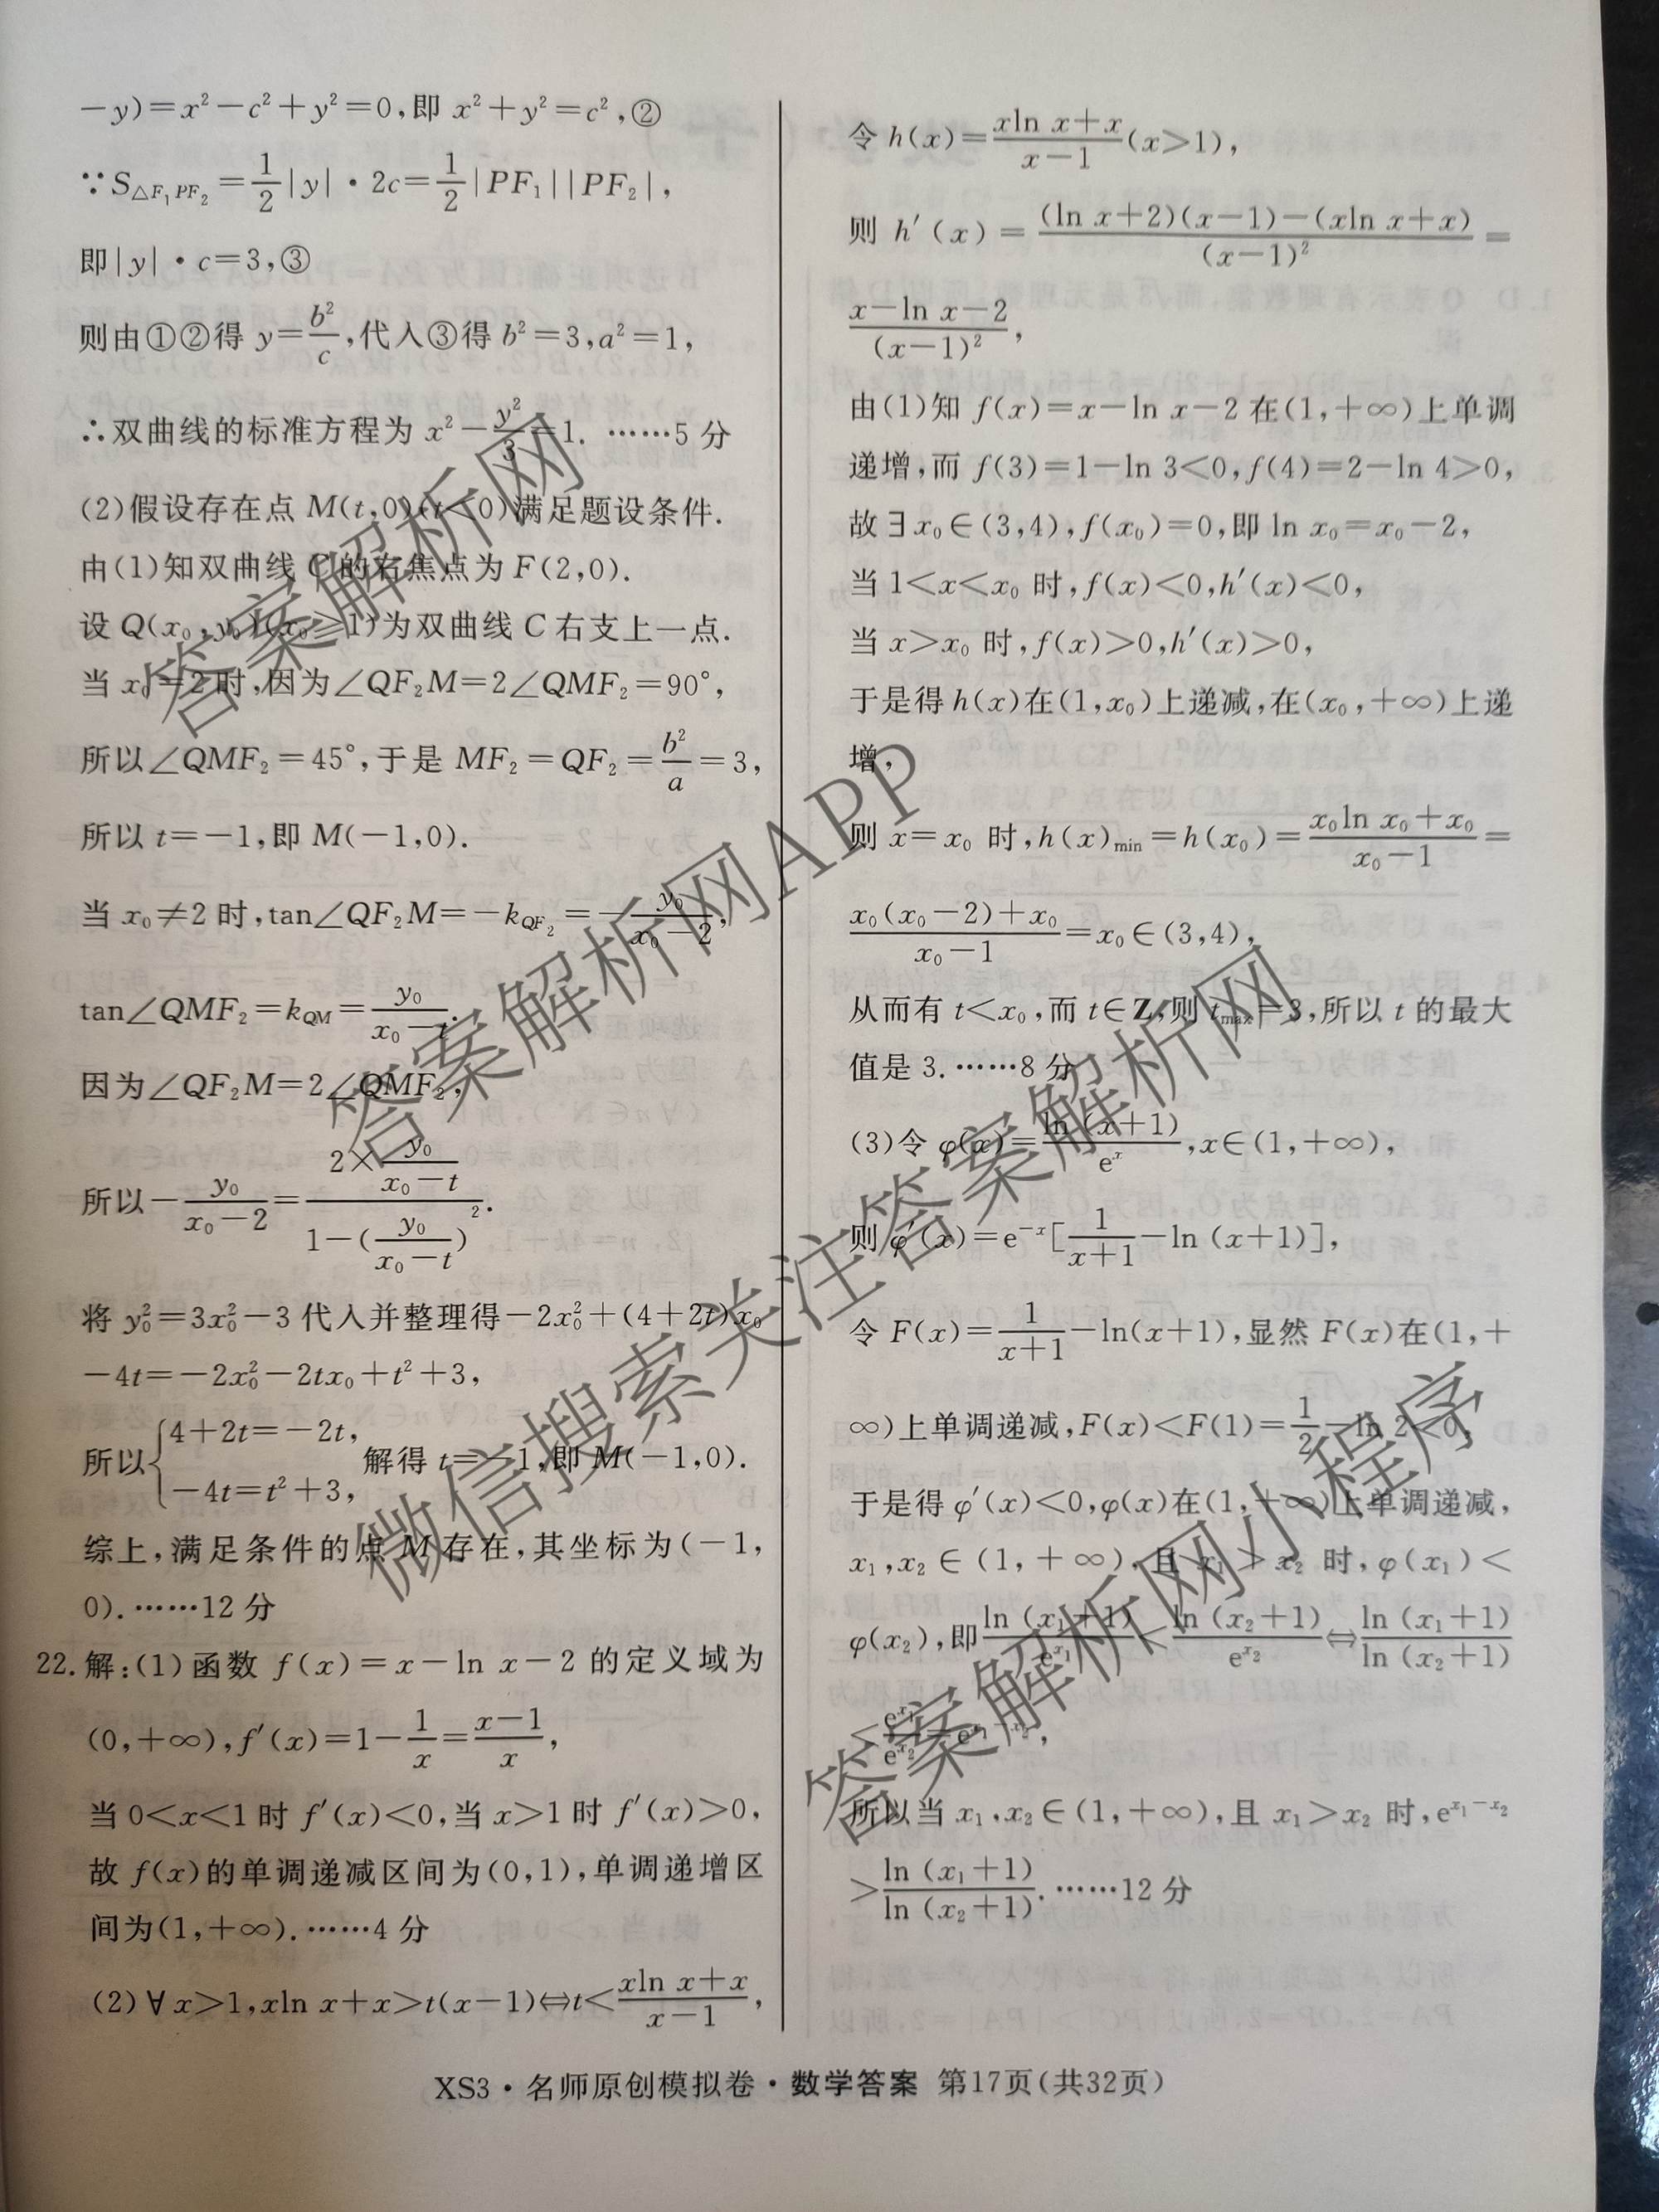 -y)=x²-c²+y²=0,即 x²+y²=c²,②
∵S△F₁PF₂=1/2|y|·2c=1/2|PF₁||PF₂|,
即|y|·c=3,③
则由①②得 y=b²/c,代入③得 b²=3,a²=1,
∴双曲线的标准方程为 x²-y²/3=1. ……5 分
(2)假设存在点 M(t,0)(t<0)满足题设条件.
由(1)知双曲线 C 的右焦点为 F(2,0).
设 Q(x₀,y₀)(x₀≥1)为双曲线 C 右支上一点.
当 x₀=2 时,因为∠QF₂M=2∠QMF₂=90°,
所以∠QMF₂=45°,于是 MF₂=QF₂=b²/a=3,
所以 t=-1,即 M(-1,0).
当 x₀≠2 时,tan∠QF₂M=-k_{QF₂}=-y₀/(x₀-2),
tan∠QMF₂=k_{QM}=y₀/(x₀-t).
因为∠QF₂M=2∠QMF₂,
所以-y₀/(x₀-2)=(2×y₀/(x₀-t))/(1-(y₀/(x₀-t))²).
将 y₀²=3x₀²-3 代入并整理得-2x₀²+(4+2t)x₀
-4t=-2x₀²-2tx₀+t²+3,
所以{4+2t=-2t, -4t=t²+3, 解得 t=-1,即 M(-1,0).
综上,满足条件的点 M 存在,其坐标为(-1,
0).……12 分
22.解:(1)函数 f(x)=x-ln x-2 的定义域为
(0,+∞),f′(x)=1-1/x=(x-1)/x,
当 0<x<1 时 f′(x)<0,当 x>1 时 f′(x)>0,
故 f(x)的单调递减区间为(0,1),单调递增区
间为(1,+∞).……4 分
(2)∀x>1,xln x+x>t(x-1)⇔t<(xln x+x)/(x-1),
令 h(x)=(xln x+x)/(x-1)(x>1),
则 h′(x)=((ln x+2)(x-1)-(xln x+x))/(x-1)²=
(x-ln x-2)/(x-1)²,
由(1)知 f(x)=x-ln x-2 在(1,+∞)上单调
递增,而 f(3)=1-ln 3<0,f(4)=2-ln 4>0,
故∃x₀∈(3,4),f(x₀)=0,即 ln x₀=x₀-2,
当 1<x<x₀ 时,f(x)<0,h′(x)<0,
当 x>x₀ 时,f(x)>0,h′(x)>0,
于是得 h(x)在(1,x₀)上递减,在(x₀,+∞)上递
增,
则 x=x₀ 时,h(x)min=h(x₀)=(x₀ln x₀+x₀)/(x₀-1)=
(x₀(x₀-2)+x₀)/(x₀-1)=x₀∈(3,4),
从而有 t<x₀,而 t∈Z,则 tmax=3,所以 t 的最大
值是 3.……8 分
(3)令 φ(x)=ln (x+1)/eˣ,x∈(1,+∞),
则 φ′(x)=e⁻ˣ[1/(x+1)-ln (x+1)],
令 F(x)=1/(x+1)-ln(x+1),显然 F(x)在(1,+
∞)上单调递减,F(x)<F(1)=1/2-ln 2<0,
于是得 φ′(x)<0,φ(x)在(1,+∞)上单调递减,
x₁,x₂∈(1,+∞),且 x₁>x₂ 时,φ(x₁)<
φ(x₂),即 ln (x₁+1)/e^{x₁}<ln (x₂+1)/e^{x₂}⇔ln (x₁+1)/ln (x₂+1)
<e^{x₁}/e^{x₂}=e^{x₁-x₂},
所以当 x₁,x₂∈(1,+∞),且 x₁>x₂ 时,e^{x₁-x₂}
>ln (x₁+1)/ln (x₂+1).……12 分
XS3·名师原创模拟卷·数学答案 第17页(共32页)
答案解析网
答案解析网APP
微信搜索关注答案解析网
答案解析网小程序